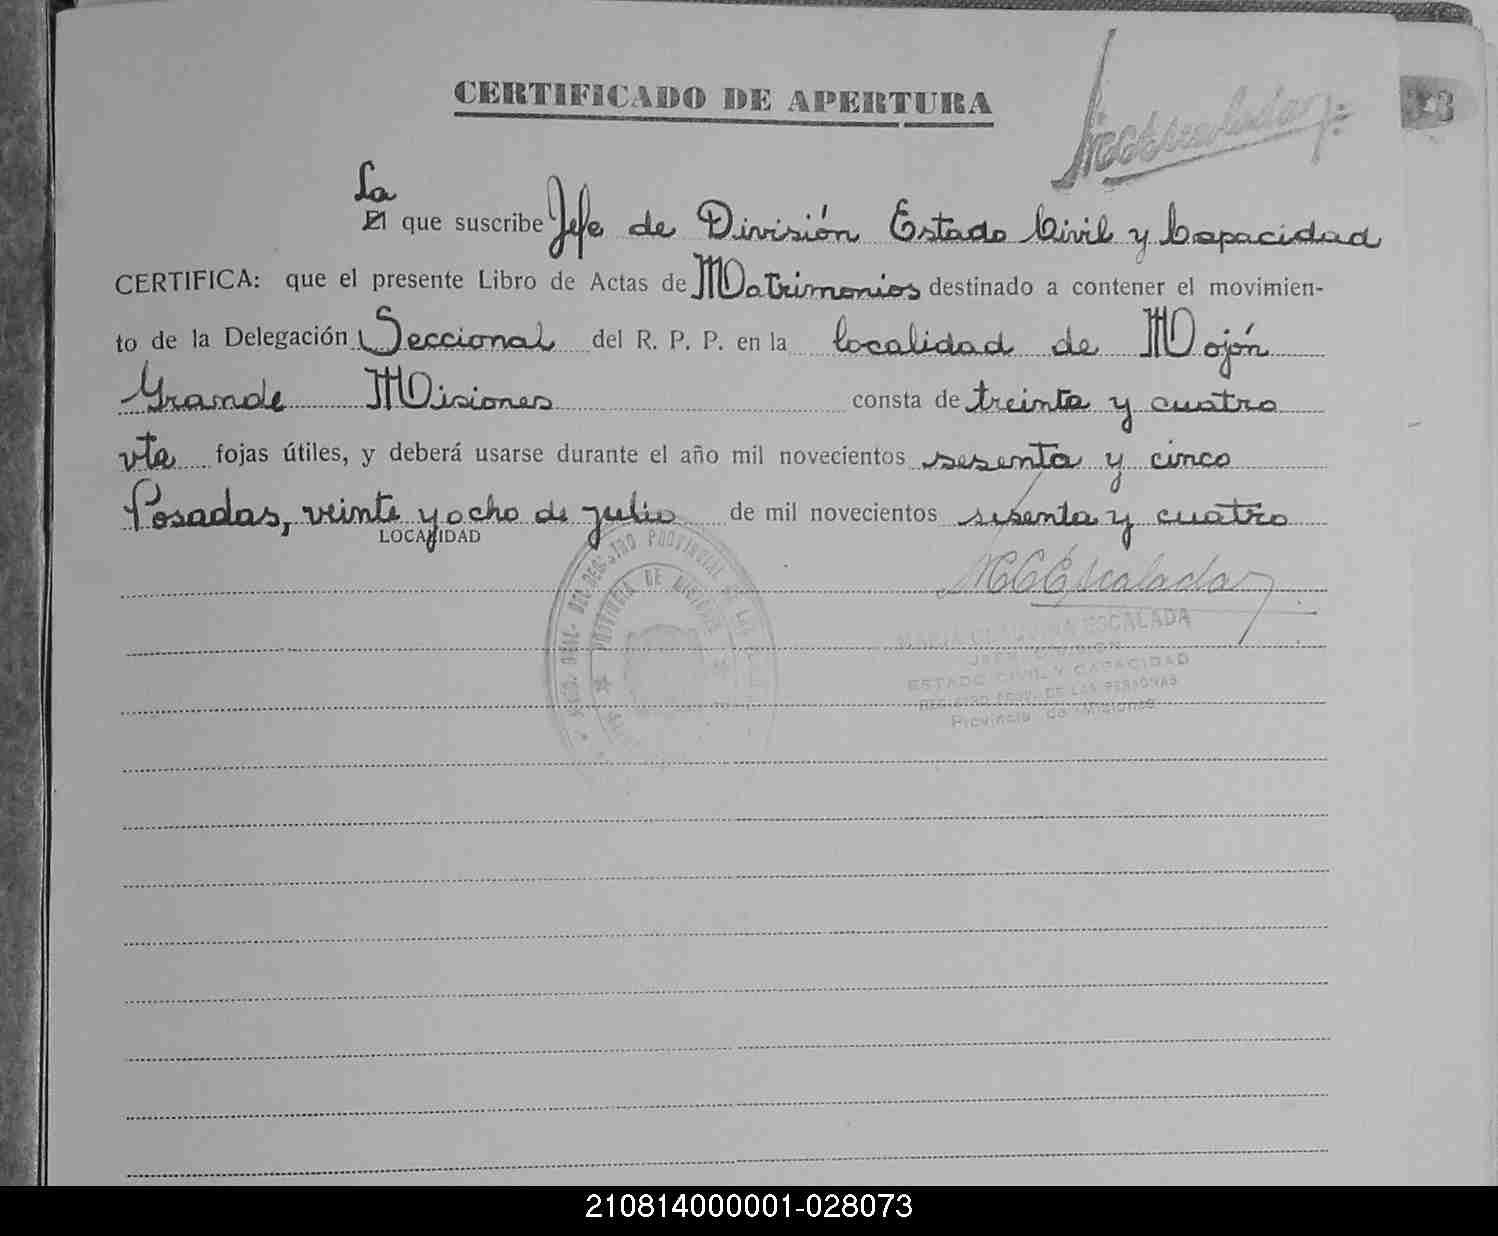 CERTIFICADO DE APERTURA
La
El que suscribe Jefe de División Estado Civil y Capacidad
CERTIFICA: que el presente Libro de Actas de Matrimonios destinado a contener el movimien-
to de la Delegación Seccional del R. P. P. en la localidad de Mojón
Grande Misiones consta de treinta y cuatro
vta fojas útiles, y deberá usarse durante el año mil novecientos sesenta y cinco
Posadas, veinte y ocho de julio de mil novecientos sesenta y cuatro
LOCALIDAD
MCCEscalada
REGISTRO PROVINCIAL DE LAS
PROVINCIA DE MISIONES
ESCALADA
JEFE DIVISION
ESTADO CIVIL Y CAPACIDAD
REGISTRO PROV. DE LAS PERSONAS
Provincia de Misiones
210814000001-028073